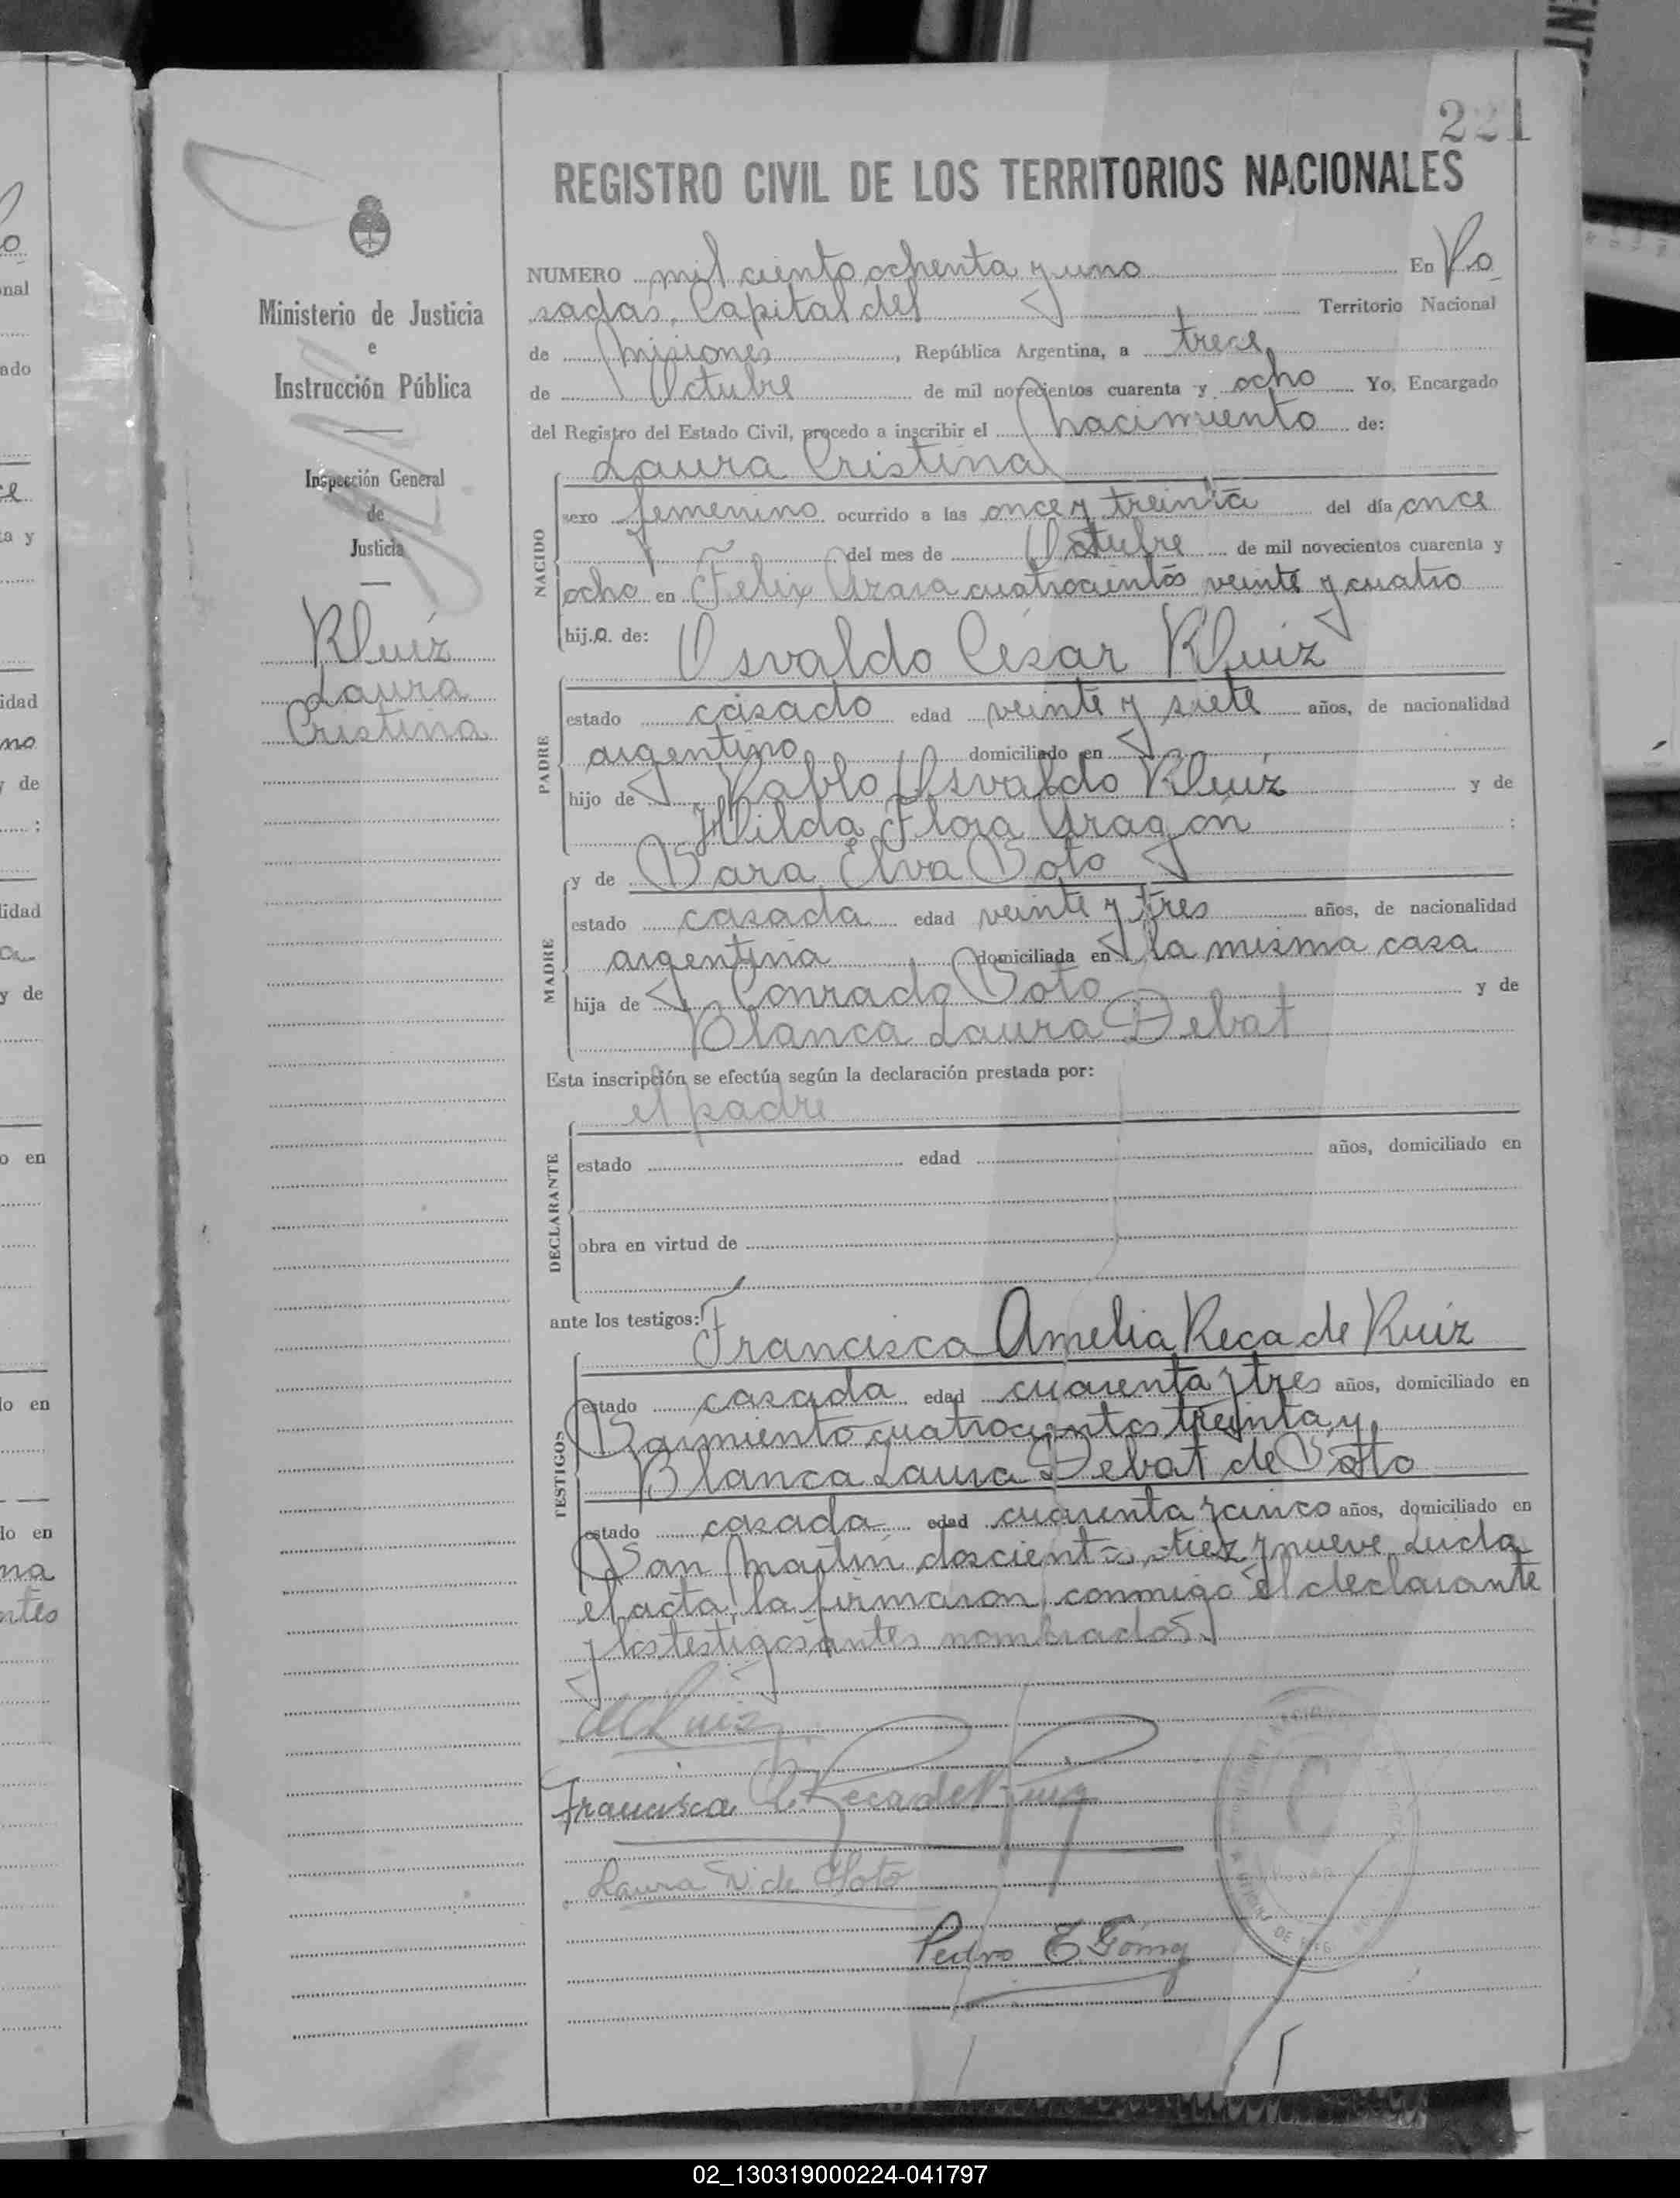 221
REGISTRO CIVIL DE LOS TERRITORIOS NACIONALES
NUMERO mil ciento ochenta y uno En Po
sadas, Capital del Territorio Nacional
de Misiones, República Argentina, a trece
de Octubre de mil novecientos cuarenta y ocho Yo, Encargado
del Registro del Estado Civil, procedo a inscribir el nacimiento de:
Laura Cristina
NACIDO
sexo femenino ocurrido a las once y treinta del día once
del mes de Octubre de mil novecientos cuarenta y
ocho en Felix Azara cuatrocientos veinte y cuatro
hij.a. de: Osvaldo César Ruiz
PADRE
estado casado edad veinte y siete años, de nacionalidad
argentino domiciliado en
hijo de Pablo Osvaldo Ruiz y de
Hilda Flora Aragón :
y de Sara Elva Soto
MADRE
estado casada edad veinte y tres años, de nacionalidad
argentina domiciliada en la misma casa
hija de Conrado Soto y de
Blanca Laura Debat
Esta inscripción se efectúa según la declaración prestada por:
el padre
DECLARANTE
estado edad años, domiciliado en
obra en virtud de
ante los testigos: Francisca Amelia Reca de Ruiz
TESTIGOS
estado casada edad cuarenta y tres años, domiciliado en
Sarmiento cuatrocientos treinta y
Blanca Laura Debat de Soto
estado casada edad cuarenta y cinco años, domiciliado en
San Martín doscientos diez y nueve. Leida
el acta, la firmaron, conmigo el declarante
y los testigos antes nombrados.
Francisca A. Reca de Ruiz
Laura D. de Soto
Pedro E. Gómez
Ministerio de Justicia
e
Instrucción Pública
Inspección General
de
Justicia
Ruiz
Laura
Cristina
02_130319000224-041797